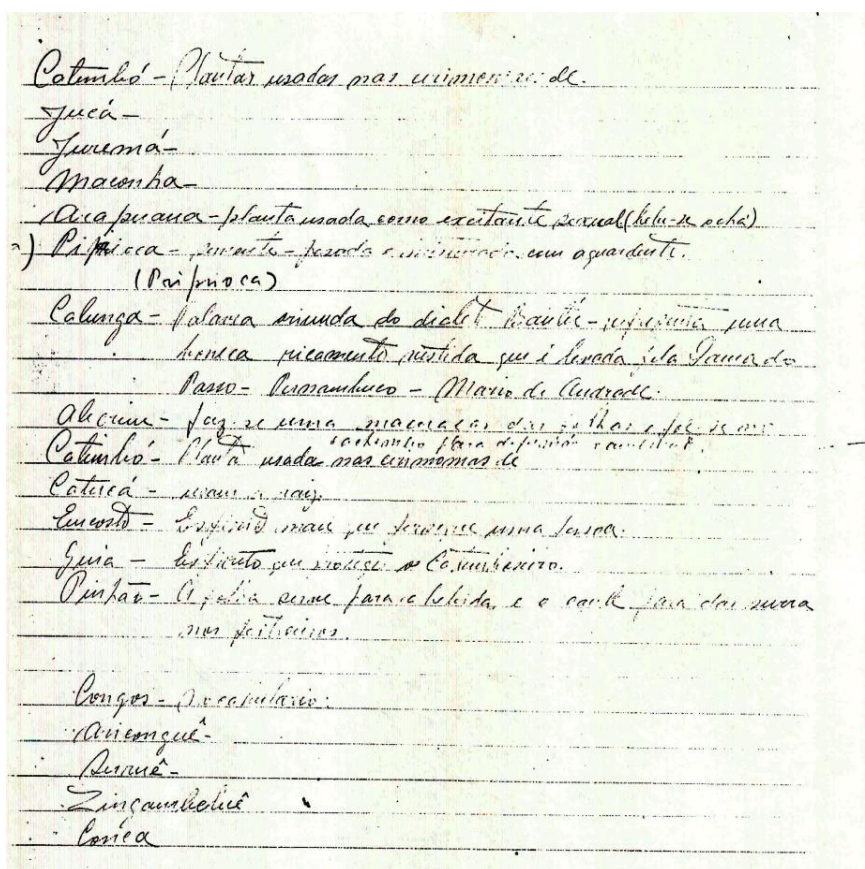 Catimbó - Plantas usadas nas cerimonias de.
Jucá -
Juremá -
Maconha -
Arapuana - planta usada como excitante sexual (bebe-se o chá)
Piprioca - semente - pesada e misturada com aguardente.
(Pripioca)
Calunga - Palavra oriunda do dialet Bantú - representa uma
boneca ricamente vestida que é levada pela Dama do
Passo - Pernambuco - Mario de Andrade.
Alecrim - faz-se uma das folhas e
cachimbo para defumar
Catimbó - Planta usada nas cerimonias de
Caticá - usam a raiz
Encosto - Espirito mau que persegue uma pessoa.
Guia - Espirito que protege o Catimbozeiro.
Pinhão - A folha serve para a bebida, e o caule para dar surra
nos feiticeiros.
Congos - Vocabulario:
Ariconguê -
Aruruê -
Zingambeluê